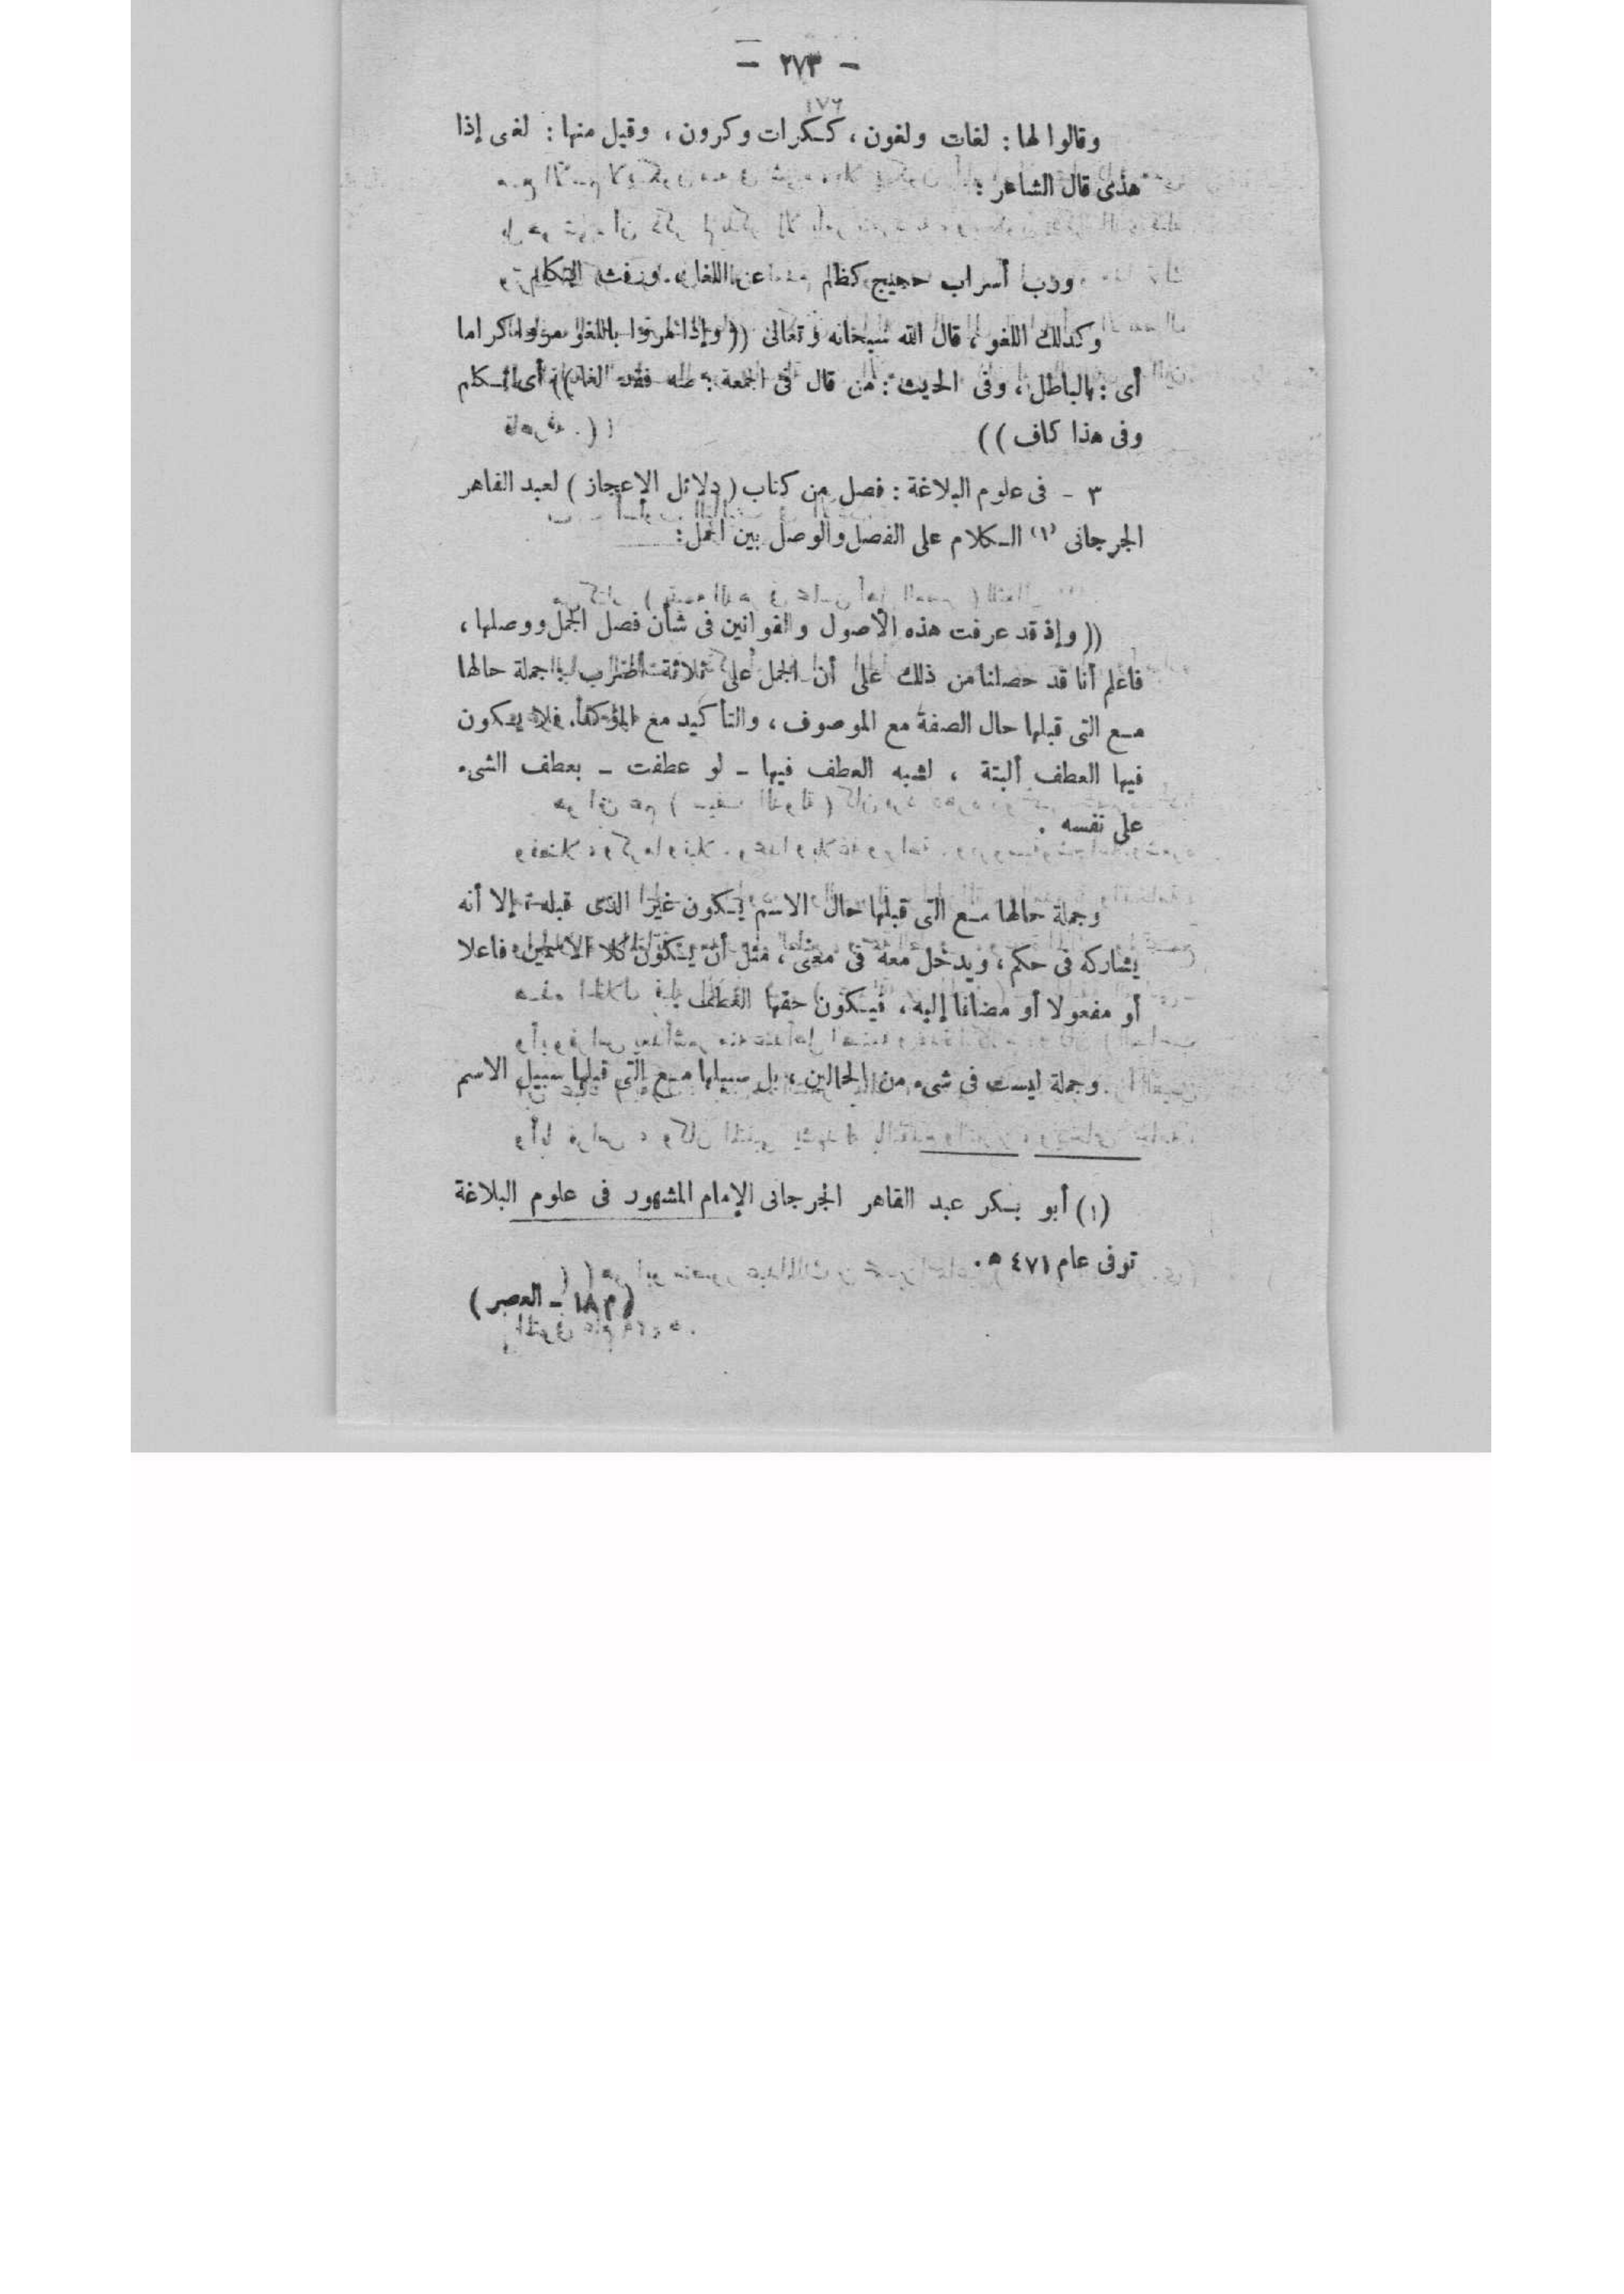 - ٢٧٣ -
وقالوا لها : لغات ولغون ، ككرات وكرون ، وقيل منها : لغى إذا
هذى قال الشاعر :
ورب أسراب حجيج كظم عن اللغا ورفث التكلم
وكذلك اللغو ، قال الله سبحانه وتعالى (( وإذا مروا باللغو مروا كراما
أى : بالباطل ، وفى الحديث : من قال فى الجمعة : صه فقد لغا )) أى تكلم
وفى هذا كاف ))
٣ - فى علوم البلاغة : فصل من كتاب ( دلائل الإعجاز ) لعبد القاهر
الجرجانى (١) الكلام على الفصل والوصل بين الجمل :
(( وإذ قد عرفت هذه الأصول والقوانين فى شأن فصل الجمل ووصلها ،
فاعلم أنا قد حصلنا من ذلك على أن الجمل على ثلاثة أضرب : جملة حالها
مع التى قبلها حال الصفة مع الموصوف ، والتأكيد مع المؤكد ، فلا يكون
فيها العطف ألبتة ، لشبه العطف فيها - لو عطفت - بعطف الشىء
على نفسه .
وجملة حالها مع التى قبلها حال الاسم يكون غير الذى قبله ، إلا أنه
يشاركه فى حكم ، ويدخل معه فى معنى ، مثل أن يكون كلا الاسمين فاعلا
أو مفعولا أو مضافا إليه ، فيكون حقها العطف
وجملة ليست فى شىء من الحالين ، بل سبيلها مع التى قبلها سبيل الاسم
(١) أبو بكر عبد القاهر الجرجانى الإمام المشهور فى علوم البلاغة
توفى عام ٤٧١ ه .
( م ١٨ - العصر )